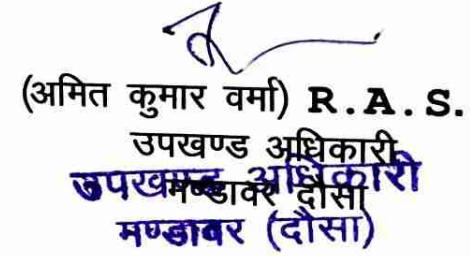 (अमित कुमार वर्मा) R.A.S.
उपखण्ड अधिकारी
मण्डावर दौसा
उपखण्ड अधिकारी
मण्डावर (दौसा)